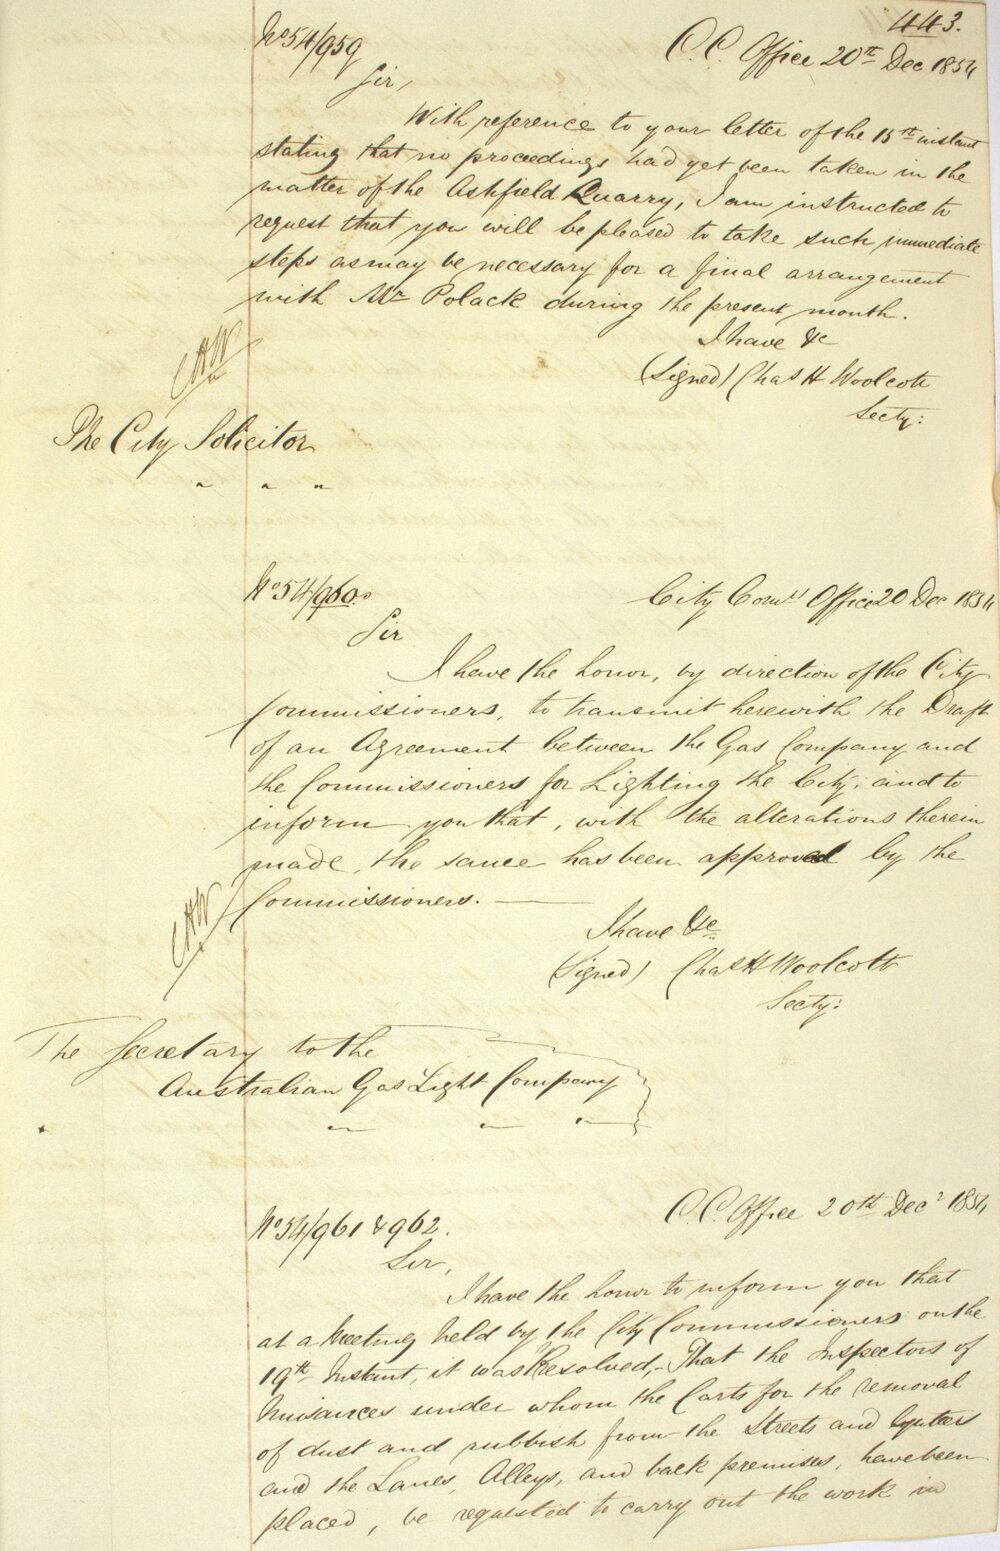 443.
No 54/959
C. C. Office 20th Dec 1854
Sir,
With reference to your letter of the 15th instant
stating that no proceedings had yet been taken in the
matter of the Ashfield Quarry, I am instructed to
request that you will be pleased to take such immediate
steps as may be necessary for a final arrangement
with Mr Polack during the present month.
I have &c
(Signed) Chas H Woolcott
Secty:
CHW
The City Solicitor
" " "
No 54/960.
City Comrs Office 20 Dec 1854
Sir
I have the honor, by direction of the City
Commissioners, to transmit herewith the Draft
of an Agreement between the Gas Company and
the Commissioners for Lighting the City; and to
inform you that, with the alterations therein
made, the same has been approved by the
Commissioners. —
I have &c
(Signed) Chas H Woolcott
Secty:
CHW
The Secretary to the
Australian Gas Light Company
" " "
No 54/961 & 962.
C. C. Office 20th Decr 1854
Sir,
I have the honor to inform you that
at a Meeting held by the City Commissioners on the
19th Instant, it was Resolved,- That the Inspectors of
Nuisances under whom the Carts for the removal
of dust and rubbish from the Streets and Gutters
and the Lanes, Alleys, and back premises, have been
placed, be requested to carry out the work in